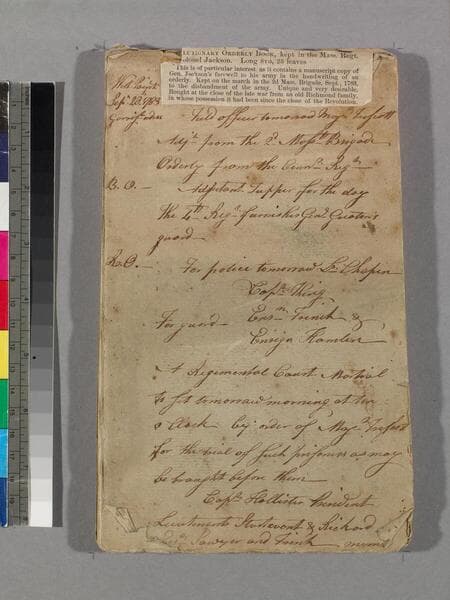 UTIONARY ORDERLY BOOK, kept in the Mass. Regt.
olonel Jackson. Long 8vo, 23 leaves
This is of particular interest as it contains a manuscript copy of
Gen. Jackson's farewell to his army in the handwriting of an
orderly. Kept on the march in the 2d Mass. Brigade, Sept., 1783,
to the disbandment of the army. Unique and very desirable.
Bought at the close of the late war from an old Richmond family,
in whose possession it had been since the close of the Revolution.
West Point
Sepr 22 1783
Field officer tomorrow Majr
Adjt from the 2d Massts Brigade
Orderly from the Regt
B.O. — Adjutant Tupper for the day
the 4th Regt furnishes Genl
guard —
R.O. — For police tomorrow Lt Chapin
Capt King
For guard — Ensn &
Ensign Hamlin
A Regimental Court Martial
to sit tomorrow morning at ten
o Clock by order of Majr
for the trial of such prisoners as may
be brought before them
Capt Hollister President
Lieutenants Sturtevant & Rickard
Sawyer and